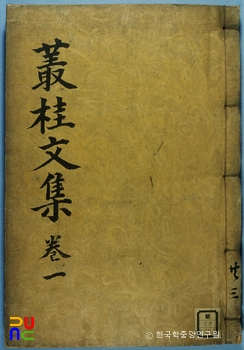 叢桂文集
卷一
共三
© 한국학중앙연구원